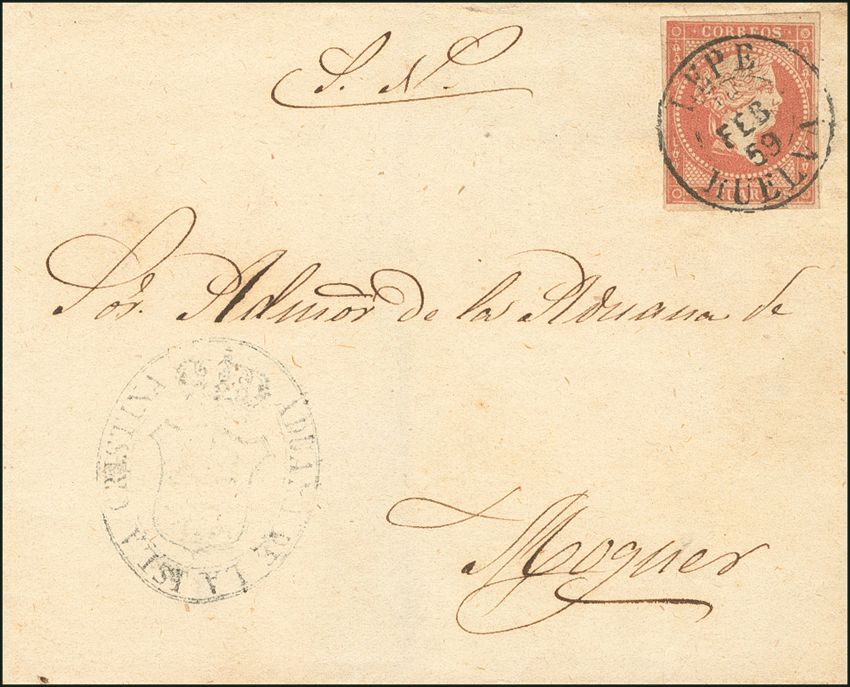 S. N.
CORREOS
LEPE
FEB
59
HUELVA
Sor. Admor de la Aduana de
Moguer
ADUANA DE LA ISLA CRISTINA